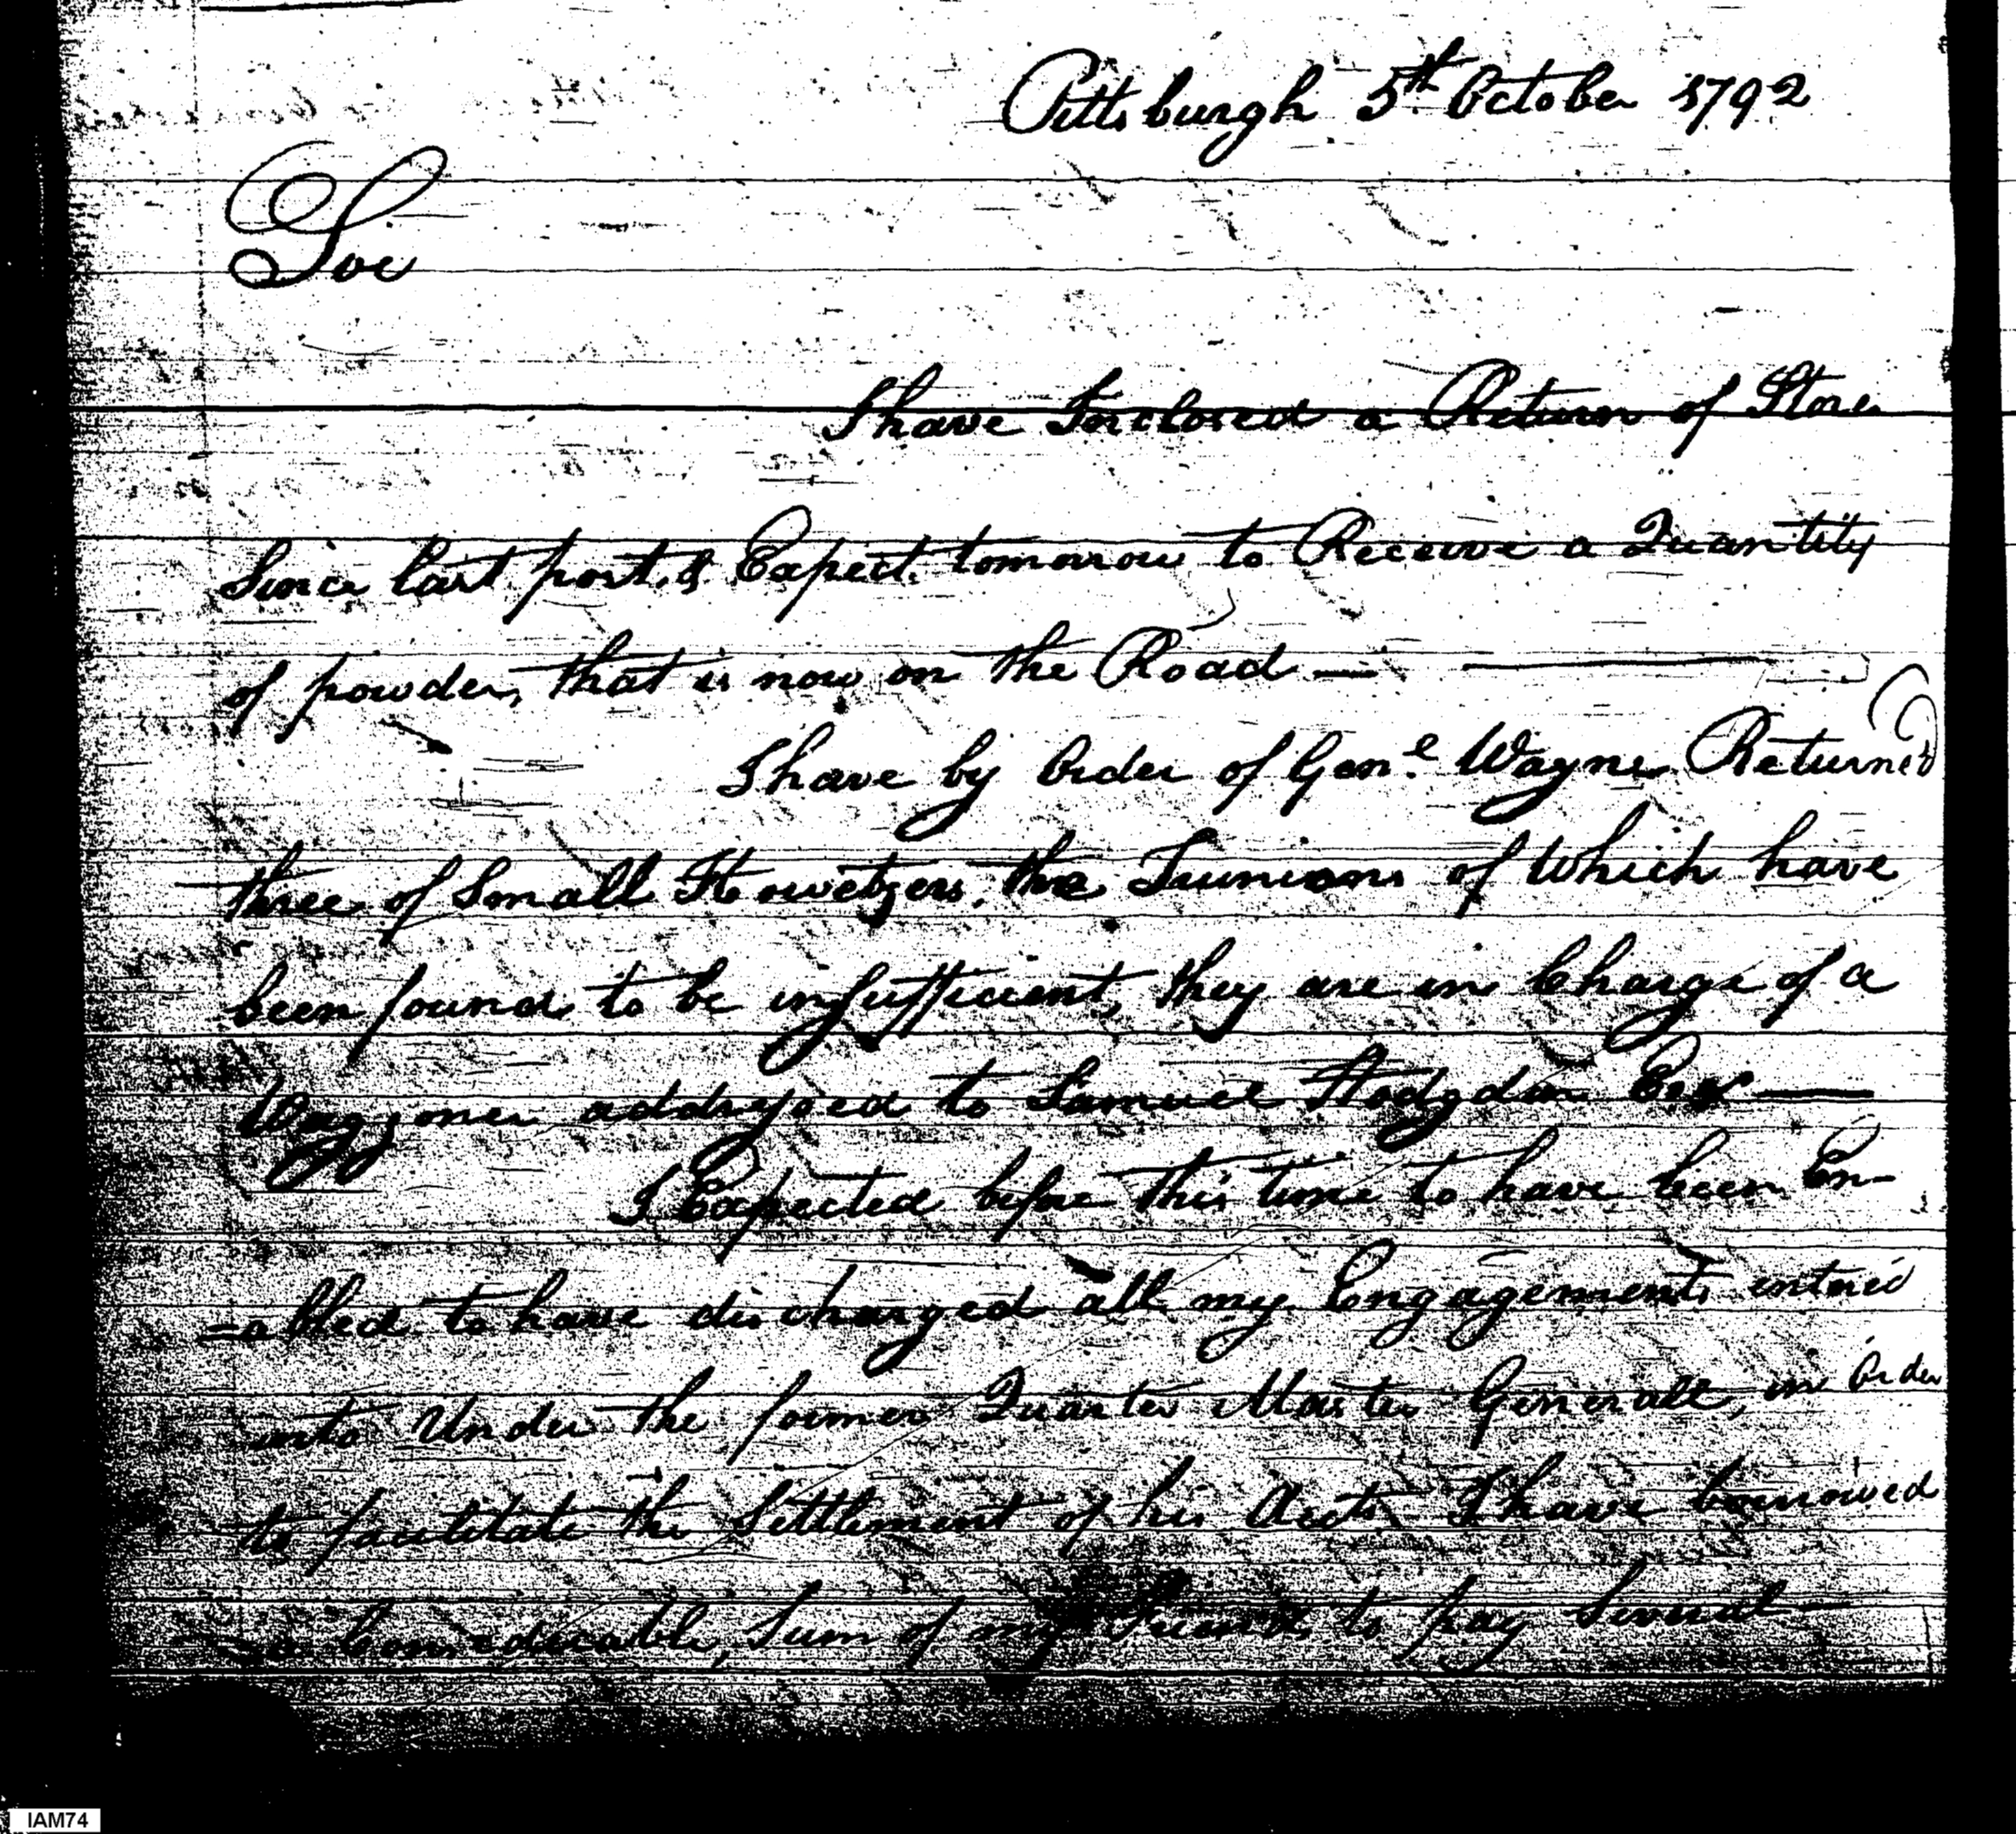 Pittsburgh 5th October 1792
Sir
I have Inclosed a Return of Stores
Since last post, & Expect tomorrow to Receive a Quantity
of powder, that is now on the Road —
I have by Order of Genl Wayne Returned
three of Small Howetzers, the Trunions of Which have
been found to be insufficient, they are in Charge of a
Waggoner addressed to Samuel Hodgdon Esqr —
I Expected before this time to have been En-
=abled to have discharged all my Engagements entered
into Under the former Quarter Master Generall, in Order
to facilitate the Settlement of his Accts I have borrowed
a Considerable, Sum of my Friends to pay Several —
IAM74